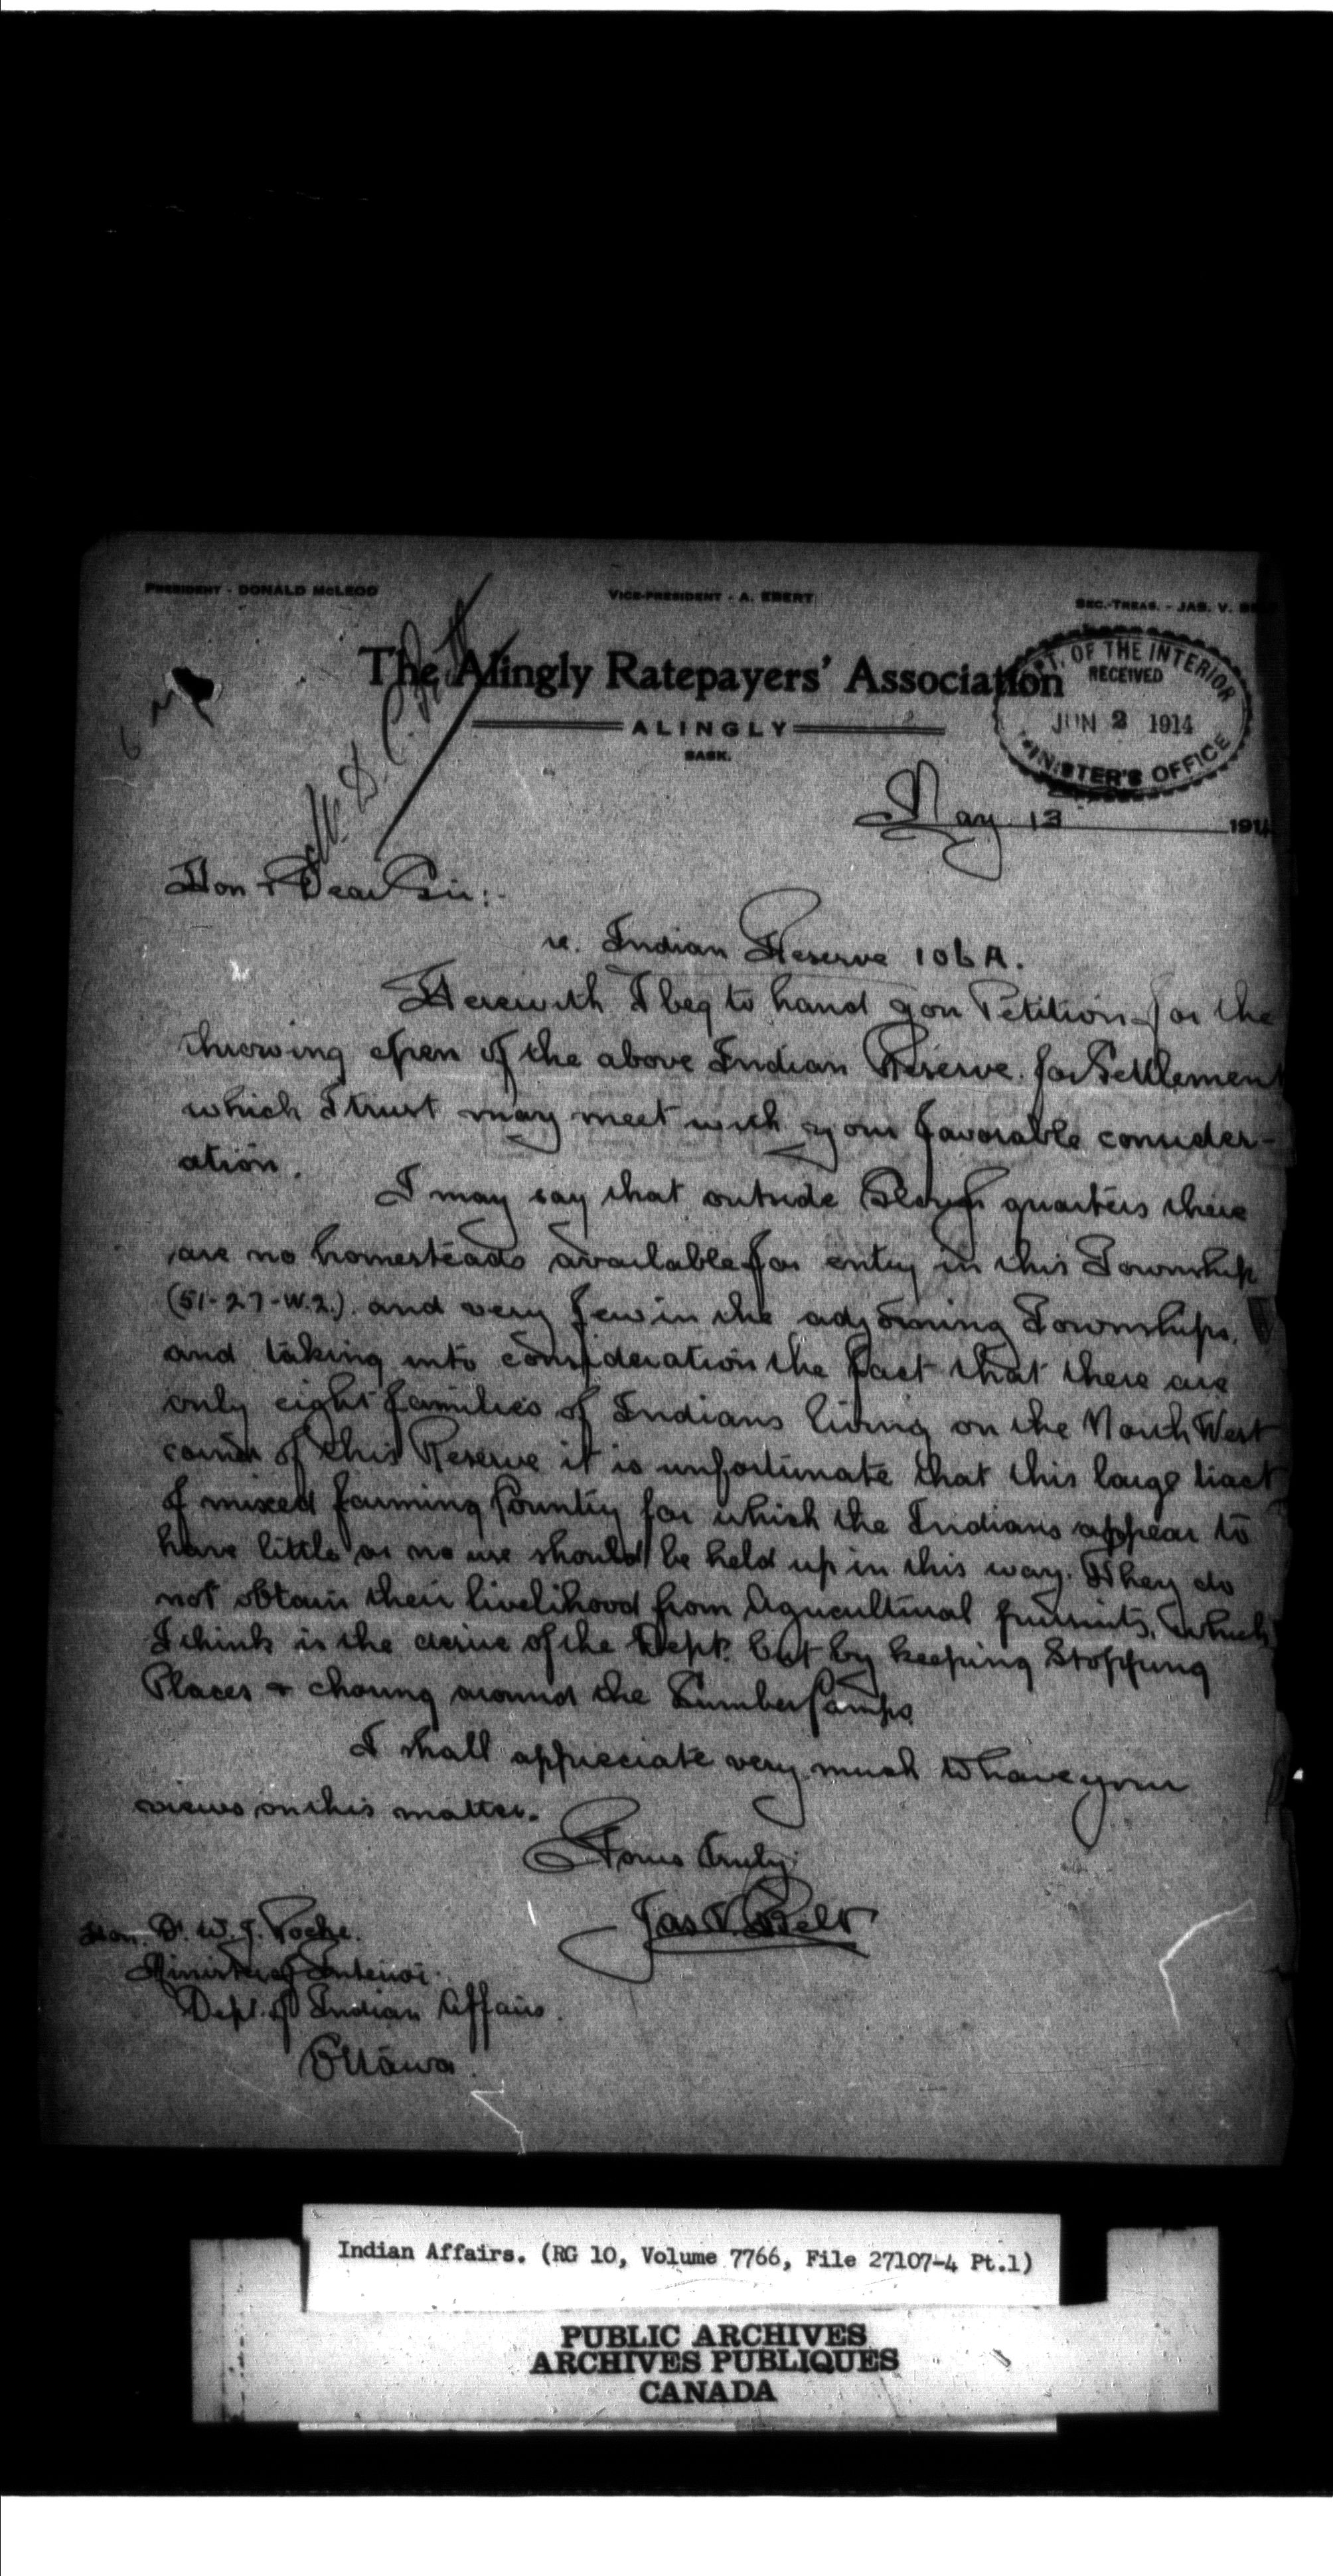 PRESIDENT - DONALD McLEOD
VICE-PRESIDENT - A. EBERT
SEC.-TREAS. - JAS. V.
The Alingly Ratepayers' Association
ALINGLY
SASK.
DEPT. OF THE INTERIOR
RECEIVED
JUN 2 1914
MINISTER'S OFFICE
May 13 1914
Hon & Dear Sir:-
re. Indian Reserve 106A.
Herewith I beg to hand you Petition for the
throwing open of the above Indian Reserve for Settlement
which I trust may meet with your favorable consider-
ation.
I may say that outside Slough quarters there
are no homesteads available for entry in this Township
(51-27-W.2.). and very few in the adjoining Townships.
and taking into consideration the fact that there are
only eight families of Indians living on the North West
corner of this Reserve it is unfortunate that this large tract
of mixed farming Country for which the Indians appear to
have little or no use should be held up in this way. They do
not obtain their livelihood from Agricultural pursuits, which
I think is the desire of the Dept. but by keeping Stopping
Places & choring around the Lumber Camps.
I shall appreciate very much to have your
views on this matter.
Yours truly
Jas V. Belt
Hon. Dr. W. J. Roche.
Minister of Interior.
Dept. of Indian Affairs.
Ottawa.
Indian Affairs. (RG 10, Volume 7766, File 27107-4 Pt.1)
PUBLIC ARCHIVES
ARCHIVES PUBLIQUES
CANADA